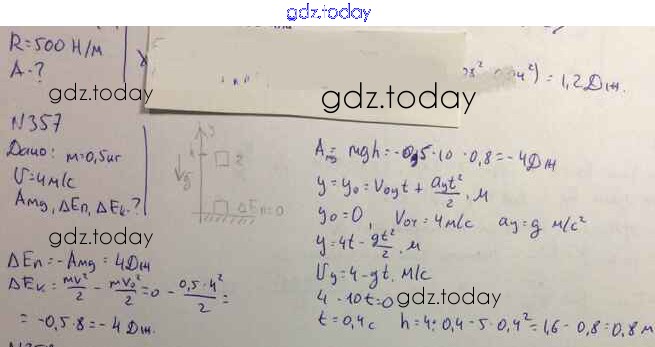 gdz.today
R=500 Н/м
A-?
gdz.today
gdz.today
) = 1,2 Дж.
N357
Дано: m=0,5 кг
U=4 м/с
Amg, ΔEп, ΔEк-?
y
g
2
ΔEп=0
Amg = mgh = -0,5·10·0,8 = -4 Дж
y = y₀ = V₀yt + ayt²/2, м
y₀=0, V₀y=4 м/с ay=g м/с²
y=4t - gt²/2, м
Uy=4-gt, м/с
4-10t=0
t=0,4c h=4·0,4-5·0,4²=1,6-0,8=0,8 м
gdz.today
gdz.today
ΔEп=-Amg=4Дж
ΔEк = mv²/2 - mv₀²/2 = 0 - 0,5·4²/2 =
= -0,5·8=-4 Дж.